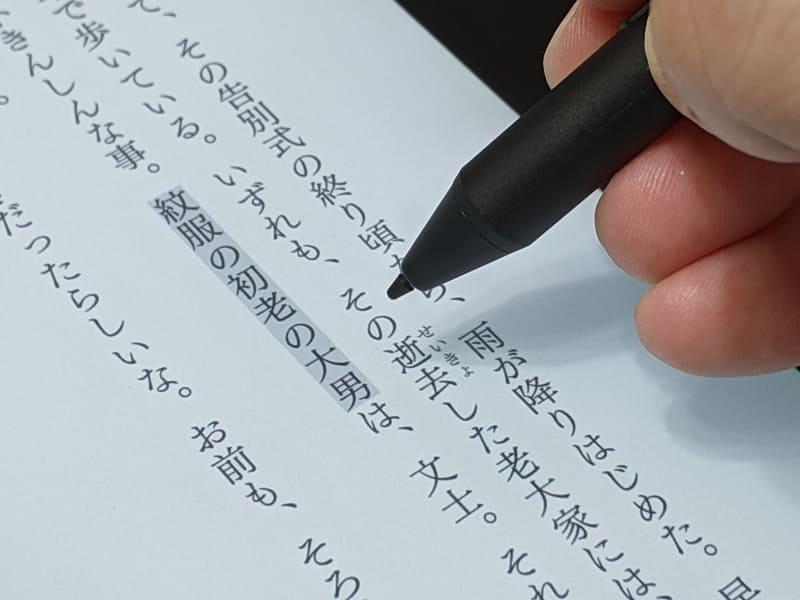 て、その告別式の終り頃から、雨が降りはじめた。早
で歩いている。いずれも、その逝去した老大家には、
せいきょ
きんしんな事。紋服の初老の大男は、文士。それ
だったらしいな。お前も、そろ